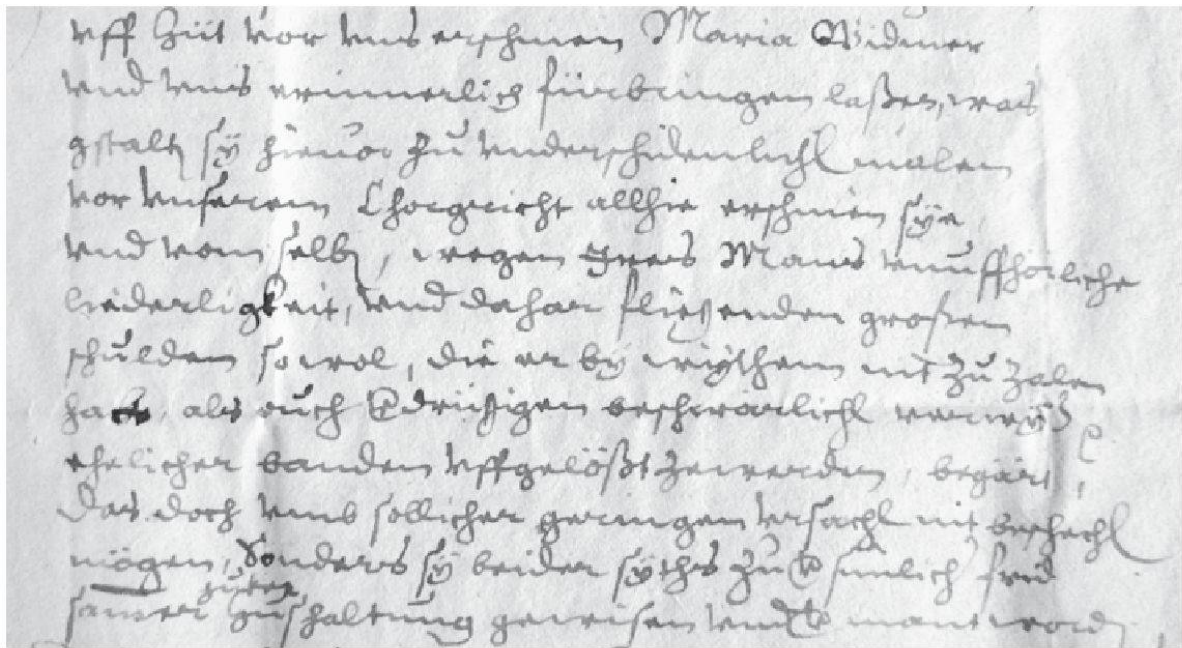 uff hüt vor uns erschinen Maria Widmer
und uns erinnerlich fürbringen laßen, was
gstalt sy hievor zu underschidenlich malen
vor unserem Chorgricht allhie erschinen sye
und vom selben, wegen ires Mans unuffhörliche
liederligkeit, und dahar fließenden großen
schulden sowol, die er by wythem nit zu zalen
hatt, als ouch
ehelicher banden uffgelößt zewerden, begärt,
das doch umb sollicher geringen ursach nit beschech
mögen, Sonders sy beider syths zu frid
samer hushaltung gewisen und